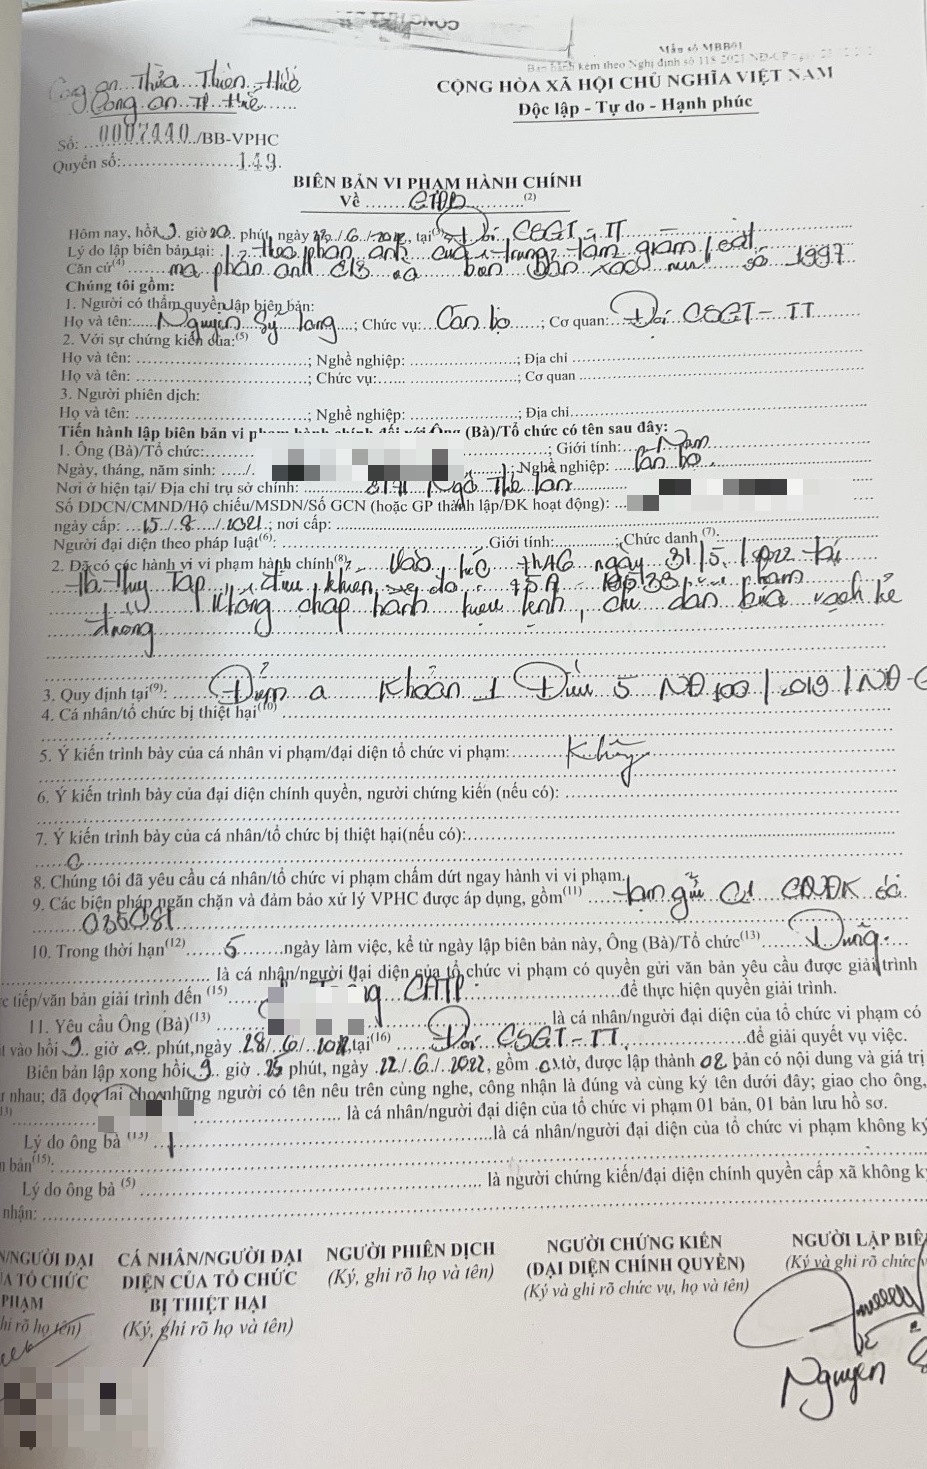 Mẫu số MBB01
Ban hành kèm theo Nghị định số 118/2021/NĐ-CP ngày
CỘNG HÒA XÃ HỘI CHỦ NGHĨA VIỆT NAM
Độc lập - Tự do - Hạnh phúc
Công an Thừa Thiên Huế
Công an TP Huế
Số: 0007440/BB-VPHC
Quyển số: 149.
BIÊN BẢN VI PHẠM HÀNH CHÍNH
Về GTĐB (2)
Hôm nay, hồi 9 giờ 20 phút, ngày 22/6/2022, tại (3) Đội CSGT-TT
Lý do lập biên bản tại: theo phản ánh của trung tâm giám sát
Căn cứ(4) mã phản ánh số 1997
Chúng tôi gồm:
1. Người có thẩm quyền lập biên bản:
Họ và tên: Nguyễn Sỹ; Chức vụ: Cán bộ; Cơ quan: Đội CSGT-TT
2. Với sự chứng kiến của:(5)
Họ và tên: ; Nghề nghiệp: ; Địa chỉ
Họ và tên: ; Chức vụ: ; Cơ quan
3. Người phiên dịch:
Họ và tên: ; Nghề nghiệp: ; Địa chỉ
Tiến hành lập biên bản vi phạm hành chính đối với Ông (Bà)/Tổ chức có tên sau đây:
1. Ông (Bà)/Tổ chức: ; Giới tính: Nam
Ngày, tháng, năm sinh: ; Nghề nghiệp: Cán bộ.
Nơi ở hiện tại/ Địa chỉ trụ sở chính: Ngô Thế Lân
Số DDCN/CMND/Hộ chiếu/MSDN/Số GCN (hoặc GP thành lập/ĐK hoạt động):
ngày cấp: 15/8/2021; nơi cấp:
Người đại diện theo pháp luật(6): Giới tính: ; Chức danh (7):
2. Đã có các hành vi vi phạm hành chính(8): Vào lúc 7h46 ngày 31/5/2022 tại
Hà Huy Tập điều khiển xe ô tô 75A - vi phạm
Không chấp hành hiệu lệnh, chỉ dẫn của vạch kẻ
đường
3. Quy định tại(9): Điểm a Khoản 1 Điều 5 NĐ 100/2019/NĐ-C
4. Cá nhân/tổ chức bị thiệt hại(10)
5. Ý kiến trình bày của cá nhân vi phạm/đại diện tổ chức vi phạm: Không
6. Ý kiến trình bày của đại diện chính quyền, người chứng kiến (nếu có):
7. Ý kiến trình bày của cá nhân/tổ chức bị thiệt hại(nếu có):
8. Chúng tôi đã yêu cầu cá nhân/tổ chức vi phạm chấm dứt ngay hành vi vi phạm.
9. Các biện pháp ngăn chặn và đảm bảo xử lý VPHC được áp dụng, gồm(11) tạm giữ 01 GCNĐK số
036081
10. Trong thời hạn(12) 5 ngày làm việc, kể từ ngày lập biên bản này, Ông (Bà)/Tổ chức(13) Dũng.
là cá nhân/người đại diện của tổ chức vi phạm có quyền gửi văn bản yêu cầu được giải trình
tiếp/văn bản giải trình đến (15) CATP để thực hiện quyền giải trình.
11. Yêu cầu Ông (Bà)(13) là cá nhân/người đại diện của tổ chức vi phạm có
vào hồi 9 giờ 00 phút, ngày 28/6/2022 tại(16) Đội CSGT-TT để giải quyết vụ việc.
Biên bản lập xong hồi 9 giờ 25 phút, ngày 22/6/2022, gồm 01 tờ, được lập thành 02 bản có nội dung và giá trị
nhau; đã đọc lại cho những người có tên nêu trên cùng nghe, công nhận là đúng và cùng ký tên dưới đây; giao cho ông,
là cá nhân/người đại diện của tổ chức vi phạm 01 bản, 01 bản lưu hồ sơ.
Lý do ông bà (13) là cá nhân/người đại diện của tổ chức vi phạm không ký
bản(15):
Lý do ông bà (5) là người chứng kiến/đại diện chính quyền cấp xã không ký
nhận:
N/NGƯỜI ĐẠI
A TỔ CHỨC
PHẠM
hi rõ họ tên)
CÁ NHÂN/NGƯỜI ĐẠI
DIỆN CỦA TỔ CHỨC
BỊ THIỆT HẠI
(Ký, ghi rõ họ và tên)
NGƯỜI PHIÊN DỊCH
(Ký, ghi rõ họ và tên)
NGƯỜI CHỨNG KIẾN
(ĐẠI DIỆN CHÍNH QUYỀN)
(Ký và ghi rõ chức vụ, họ và tên)
NGƯỜI LẬP BIÊ
(Ký và ghi rõ chức
Nguyễn